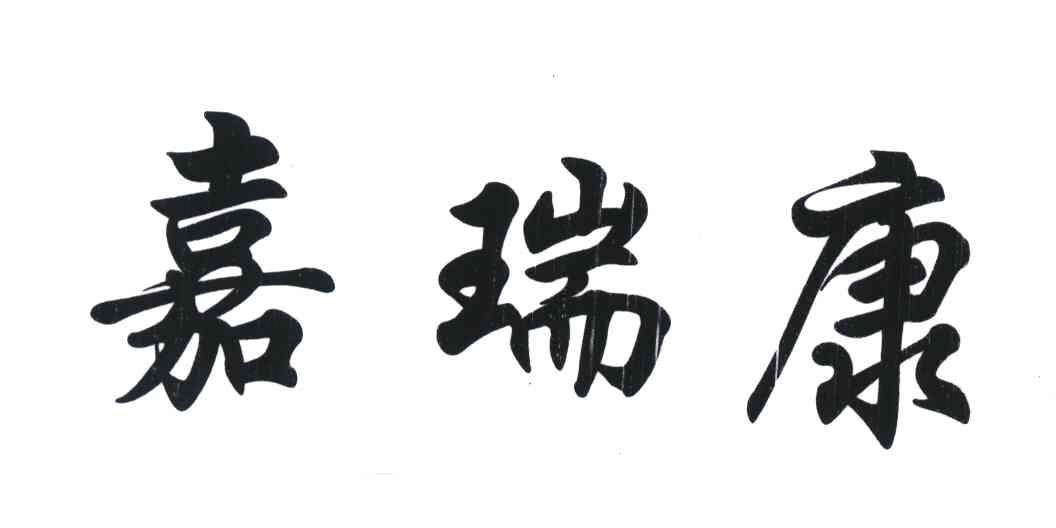 嘉瑞康